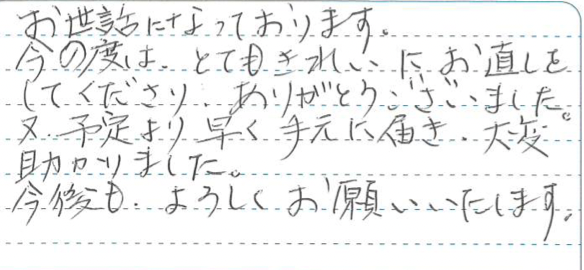 お世話になっております。
今の度は、とてもきれいにお直しを
してくださり、ありがとうございました。
又、予定より早く手元に届き、大変
助かりました。
今後も、よろしくお願いいたします。